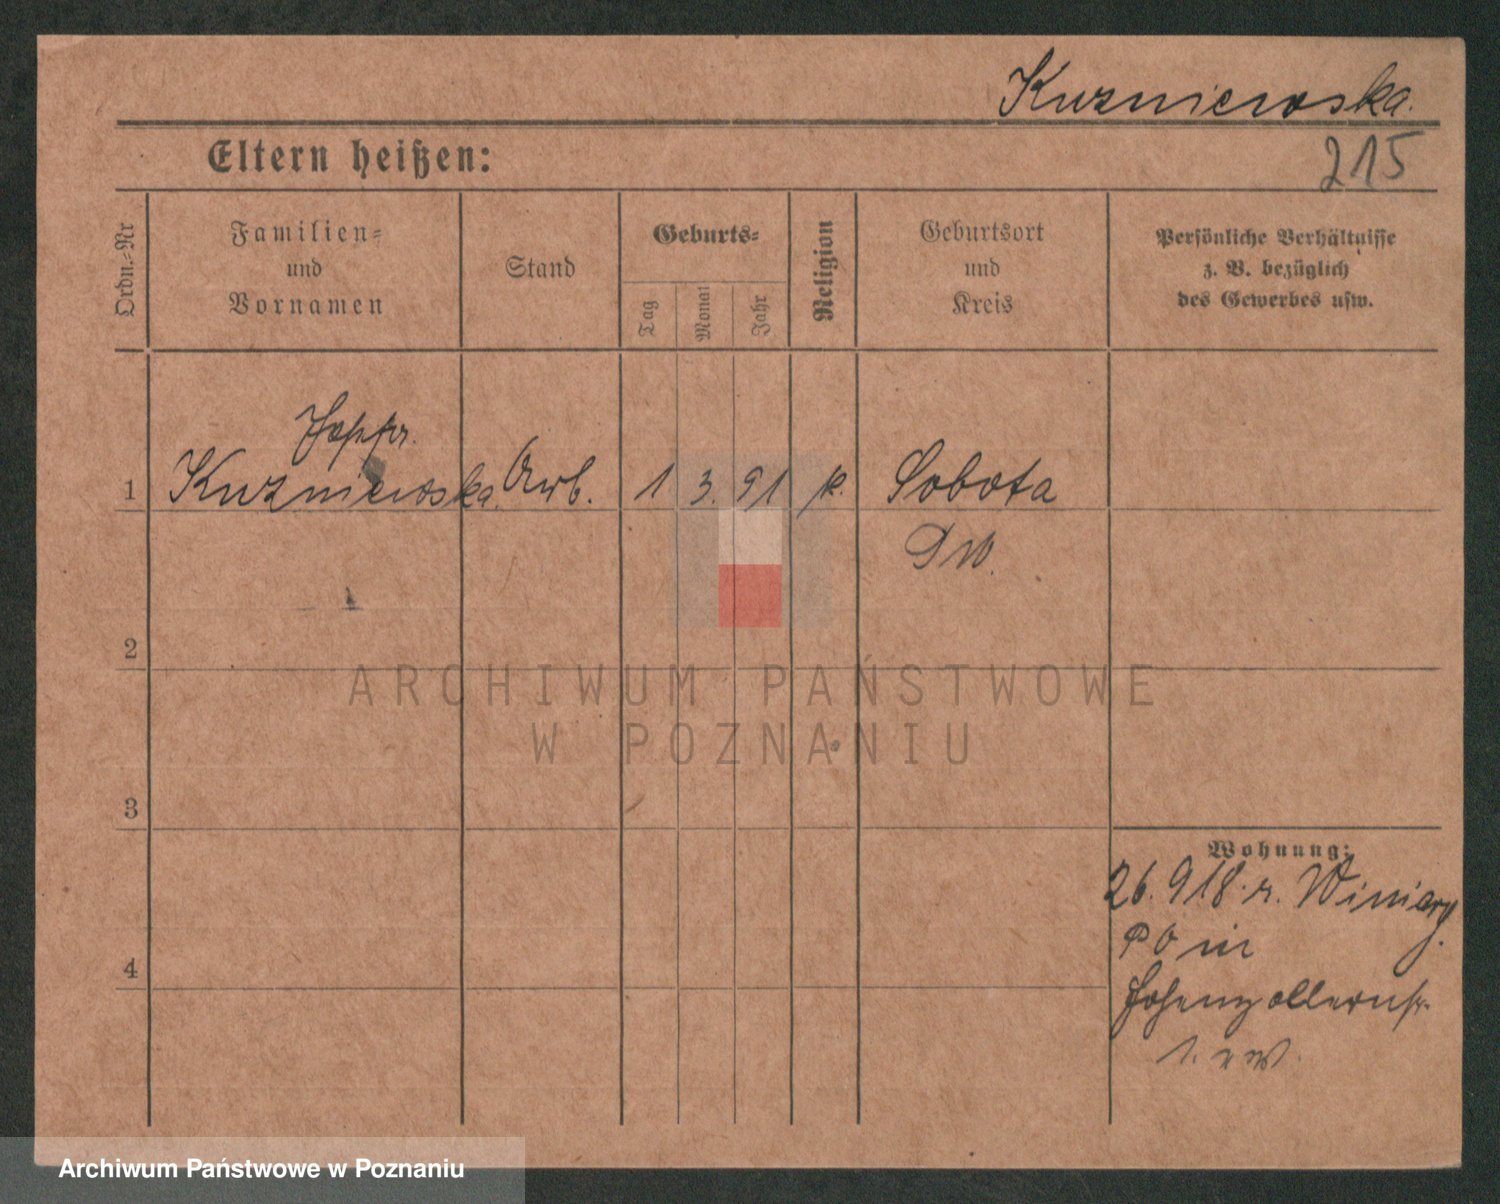 Kuzniewska.
Eltern heißen:
215
Ordn.-Nr
Familien-
und
Vornamen
Stand
Geburts-
Tag
Monat
Jahr
Religion
Geburtsort
und
Kreis
Persönliche Verhältnisse
z. B. bezüglich
des Gewerbes usw.
1
Kuzniewska.
Arb.
1
3.
91
k.
Sobota
PW.
2
3
4
Wohnung:
26. 918. r. Winiary.
Hohenzollernstr
ARCHIWUM PAŃSTWOWE
W POZNANIU
Archiwum Państwowe w Poznaniu